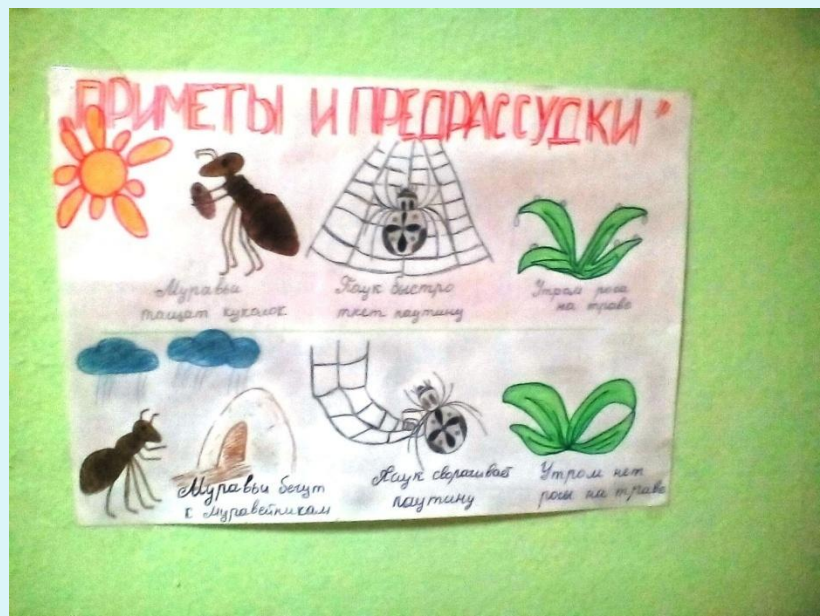 ПРИМЕТЫ И ПРЕДРАССУДКИ"
Муравьи
тащат куколок
Паук быстро
ткет паутину
Утром роса
на траве
Муравьи бегут
к муравейникам
Паук сворачивает
паутину
Утром нет
росы на траве